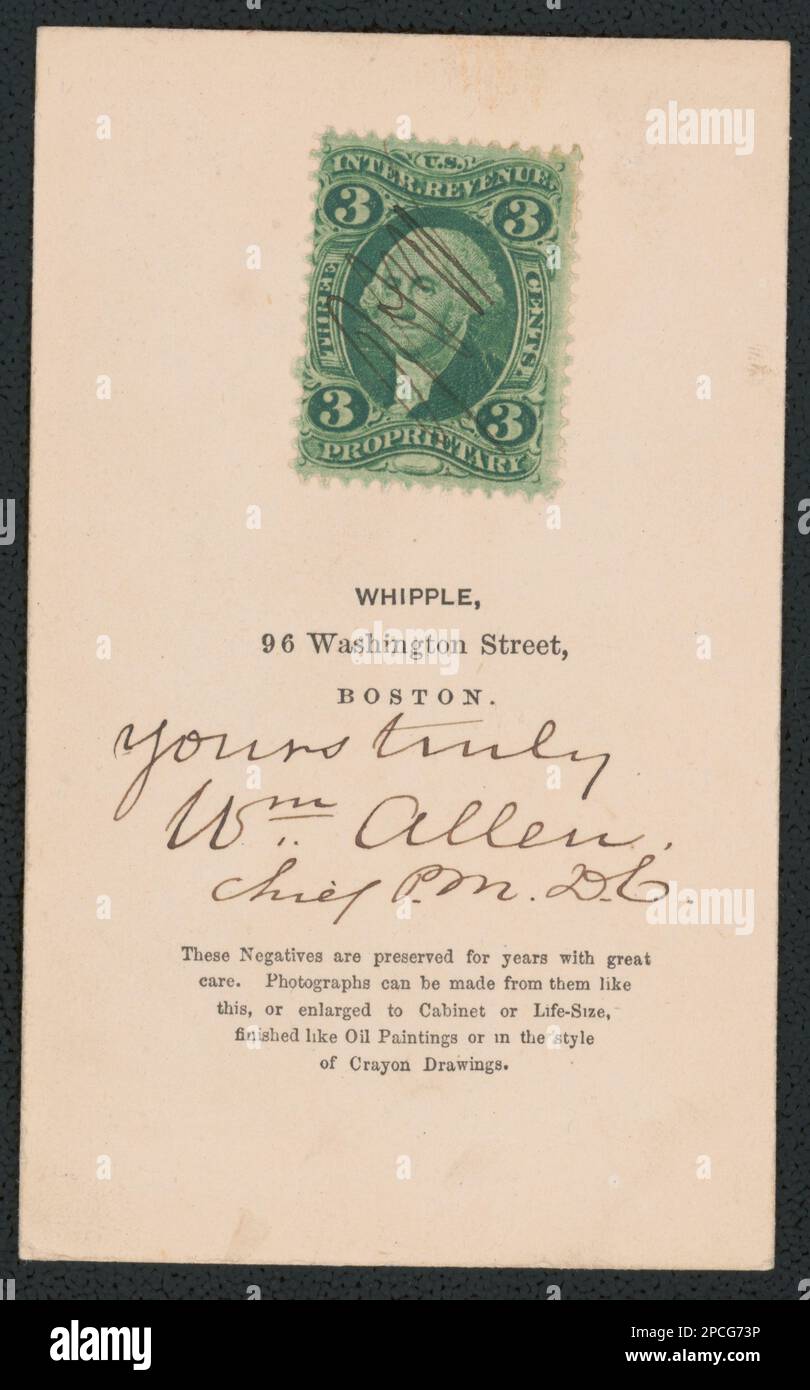 U.S.
INTER. REVENUE.
3 3
THREE
CENTS.
3 3
PROPRIETARY
WHIPPLE,
96 Washington Street,
BOSTON.
yours truly
Wm. Allen.
Chief P.M. D.C.
These Negatives are preserved for years with great
care. Photographs can be made from them like
this, or enlarged to Cabinet or Life-Size,
finished like Oil Paintings or in the style
of Crayon Drawings.
alamy
alamy
alamy
Image ID: 2PCG73P
www.alamy.com